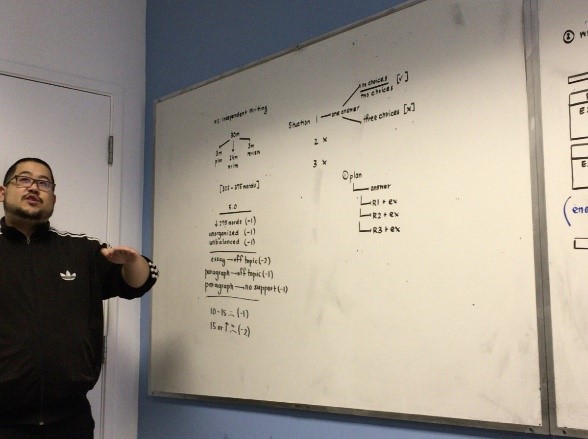 #2: independent writing
30m
3m 24m 3m
plan write revise
[325 - 375 words]
5.0
↓ 275 words (-1)
unorganized (-1)
unbalanced (-1)
essay → off topic (-2)
paragraph → off topic (-1)
paragraph → no support (-1)
10 - 15 (-1)
15 or ↑ (-2)
Situation 1 — one answer
no choices
two choices [√]
three choices [x]
2 x
3 x
① plan
answer
R1 + ex
R2 + ex
R3 + ex
②
adidas